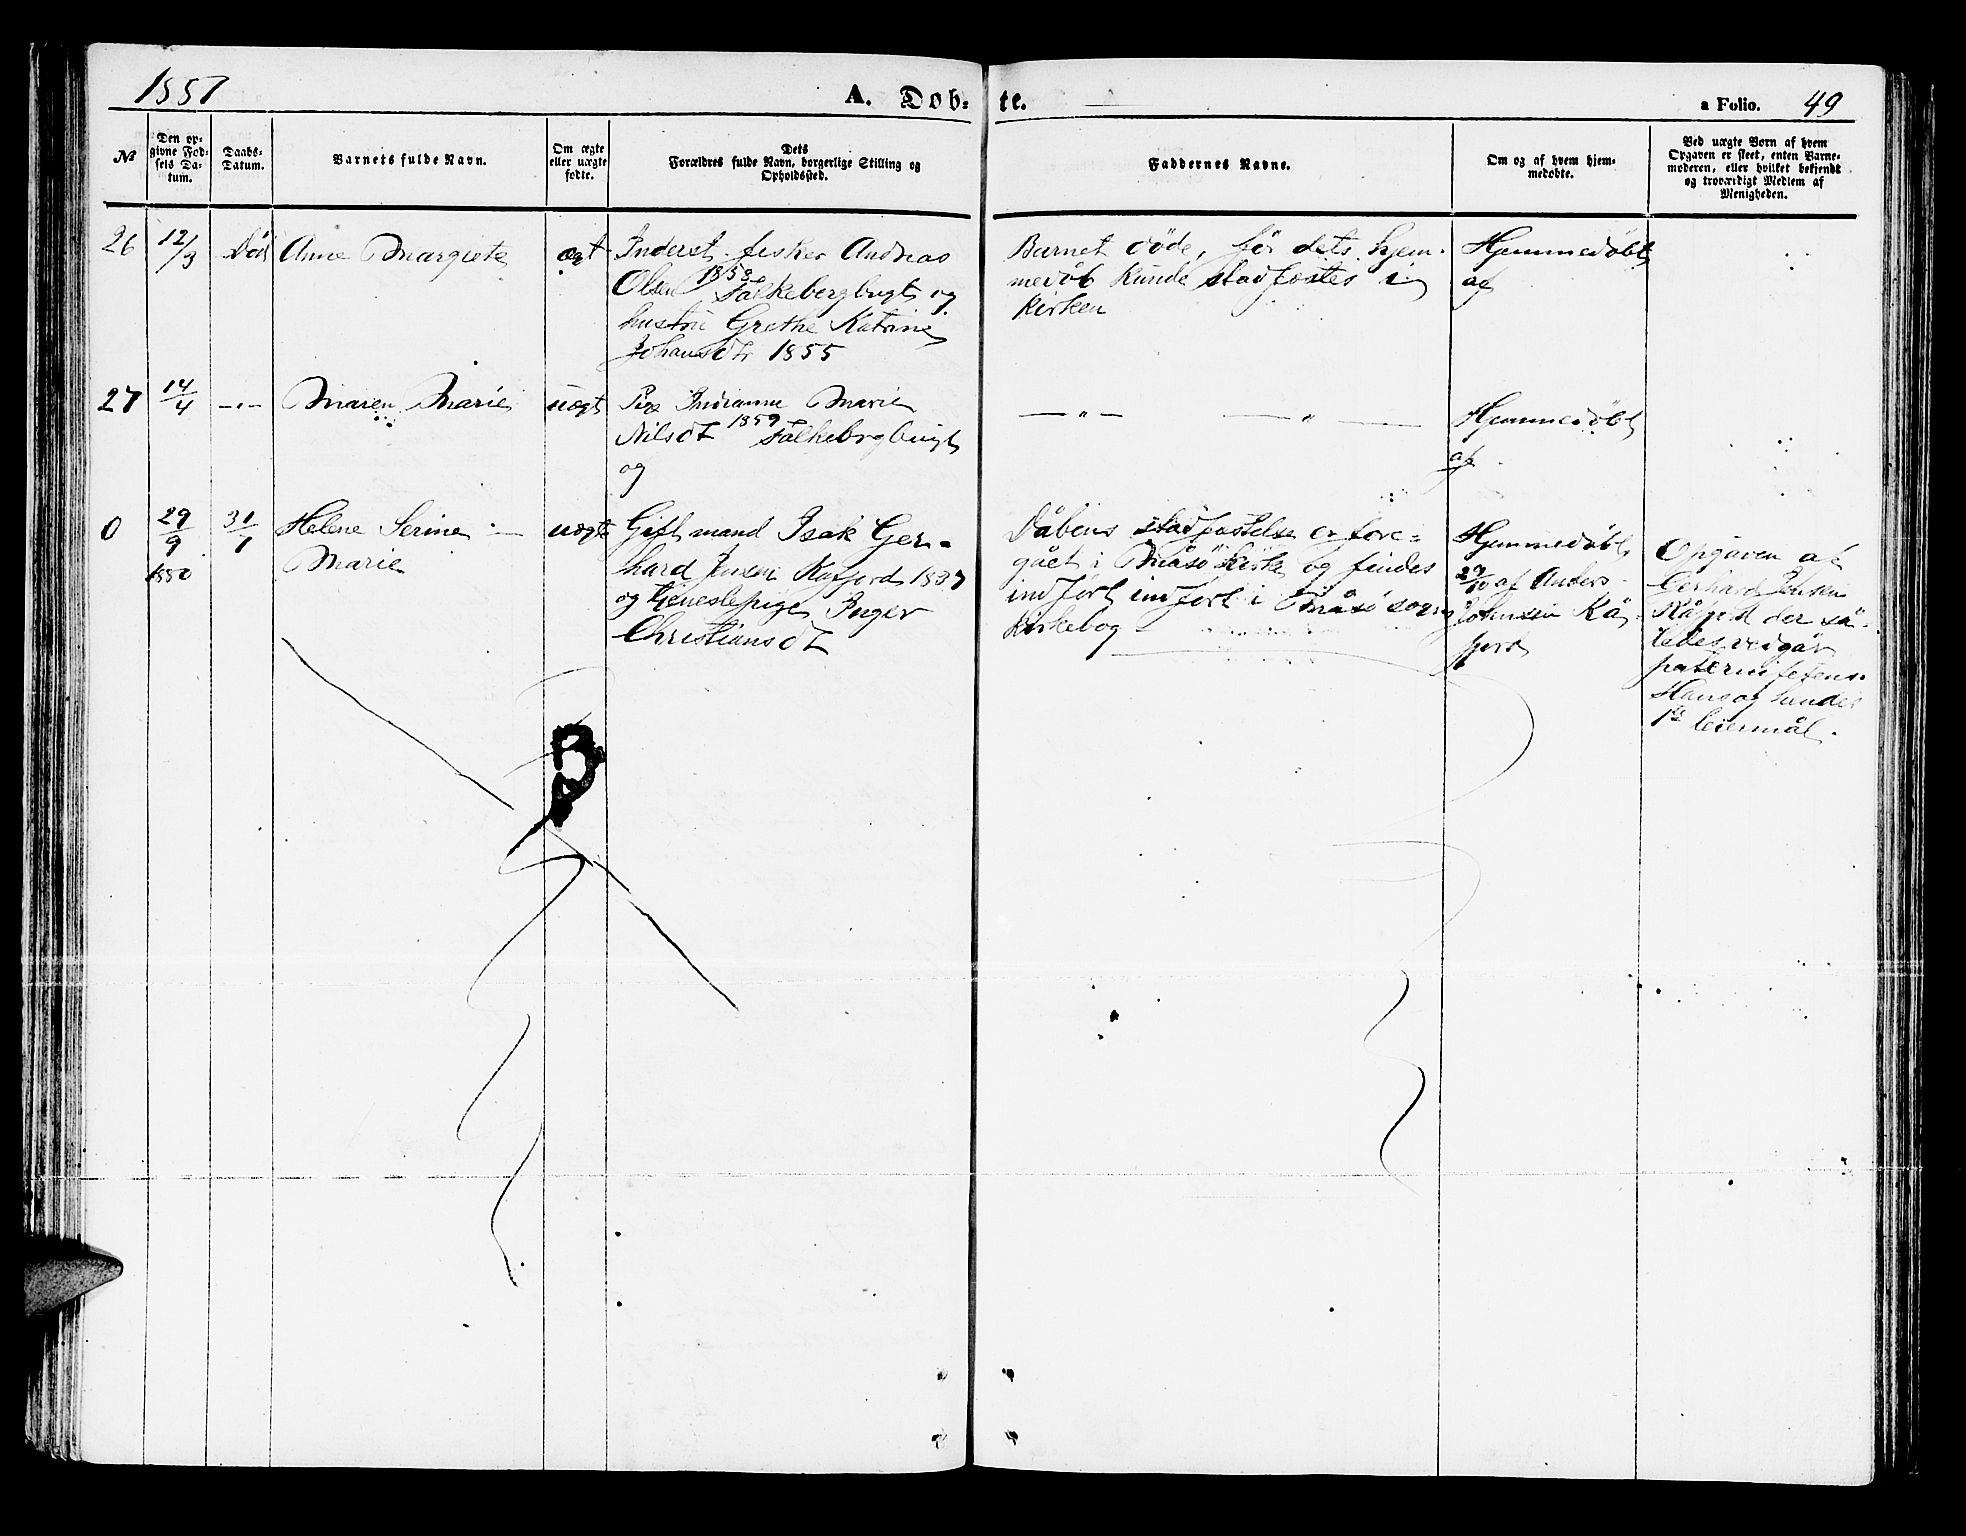 1881
A. Døb-
te.
a Folio. 49
No
Den op-
givne Fød-
sels Da-
tum.
Daabs-
Datum.
Barnets fulde Navn.
Om ægte
eller uægte
fødte.
Dets
Forældres fulde Navn, borgerlige Stilling og
Opholdssted.
Faddernes Navne.
Om og af hvem hjem-
medøbte.
Ved uægte Børn af hvem
Opgaven er skeet, enten Barne-
moderen, eller hvilket bekjendt
og troværdigt Medlem af
Menigheden.
26
12/3
Død
Anne Margrete
ægt
Inderst fisker Andreas
Olsen 1853 Falkebergbugt og
hustru Grethe Katrine
Johansdtr 1855
Barnet døde, før dets hjem-
medåb kunde stadfæstes i
kirken
Hjemmedøbt
af
27
14/4
-"-
Maren Marie
uægt
Pige Indianne Marie
Nilsdt 1859 Falkebrgbugt
og
-"- -"-
Hjemmedøbt
af
0
29/9
1880
31/7
Helene Serine
Marie
uægte
Gift mand Isak Ger-
hard Jensen Kafjord 1837
og tjenestepige Inger
Christiansdt
Dåbens stadfæstelse er fore-
gået i Måsø kirke og findes
indført indført i Måsø sogns
kirkebog
Hjemmedøbt
29/10 af Anders
Johnsen Kå
fjord
Opgaven af
Gerhard Jensen
Kåfjord der så-
ledes vedgår
paterniteten.
Hans og hendes
1ste leiermål.